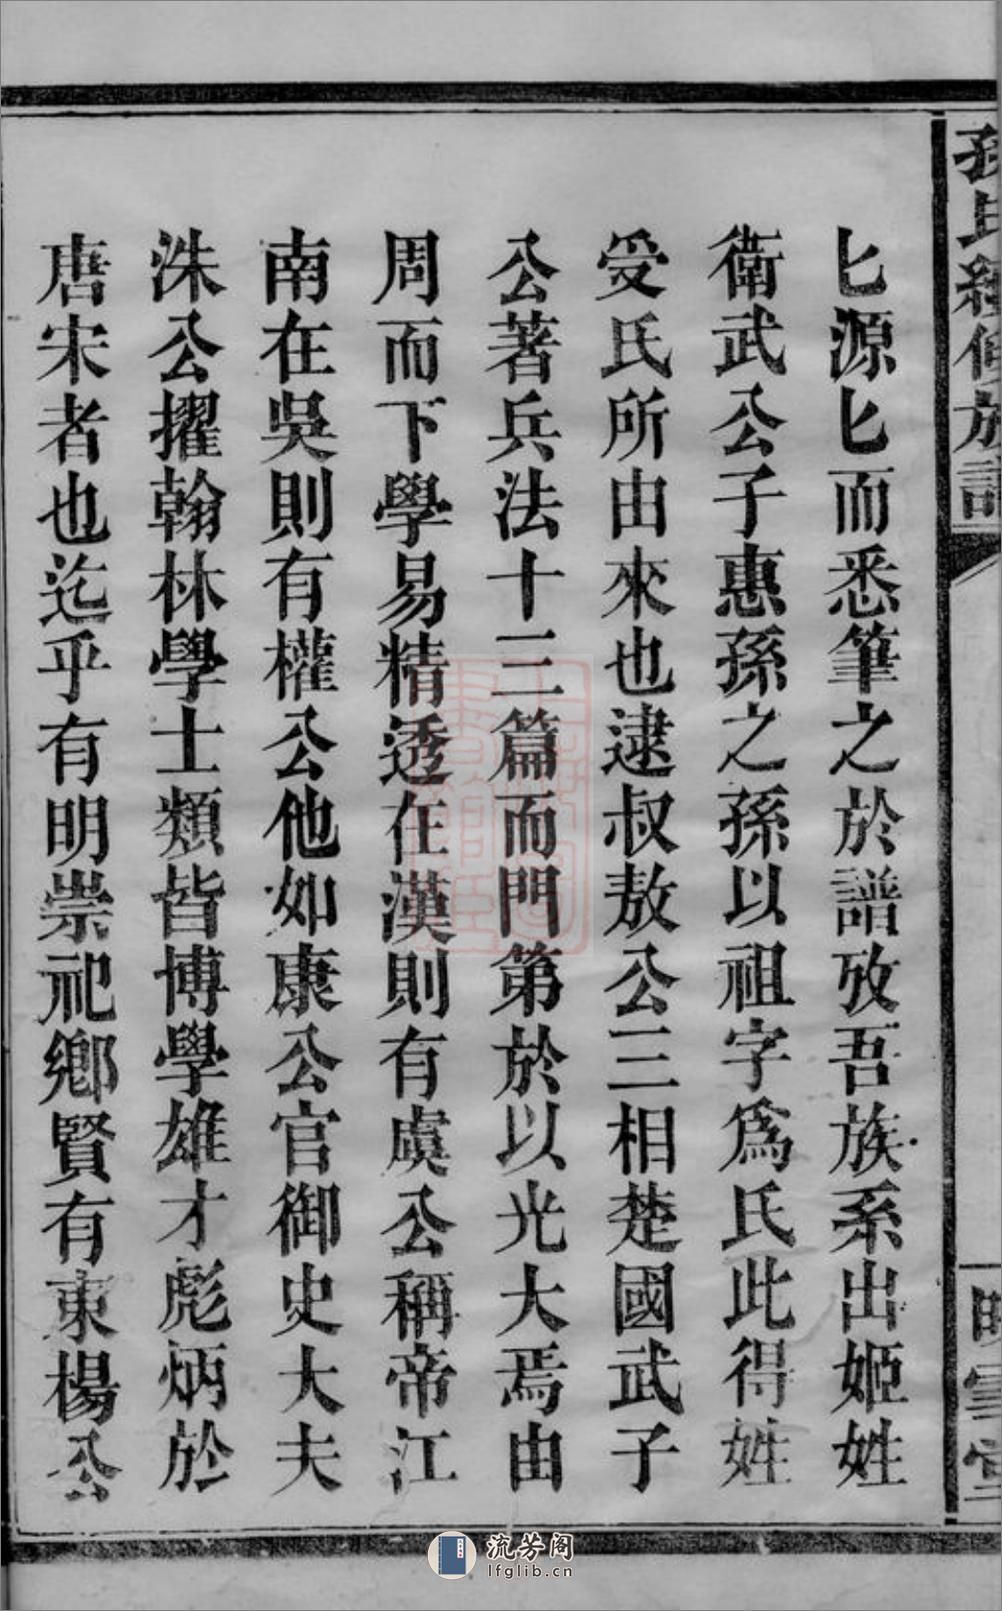 匕源匕而悉筆之於譜攷吾族系出姬姓
衛武公子惠孫之孫以祖字爲氏此得姓
受氏所由來也逮叔敖公三相楚國武子
公著兵法十三篇而門第於以光大焉由
周而下學易精透在漢則有虞公稱帝江
南在吳則有權公他如康公官御史大夫
洙公擢翰林學士類皆博學雄才彪炳於
唐宋者也迄乎有明崇祀鄉賢有東楊公
流芳阁
lfglib.cn